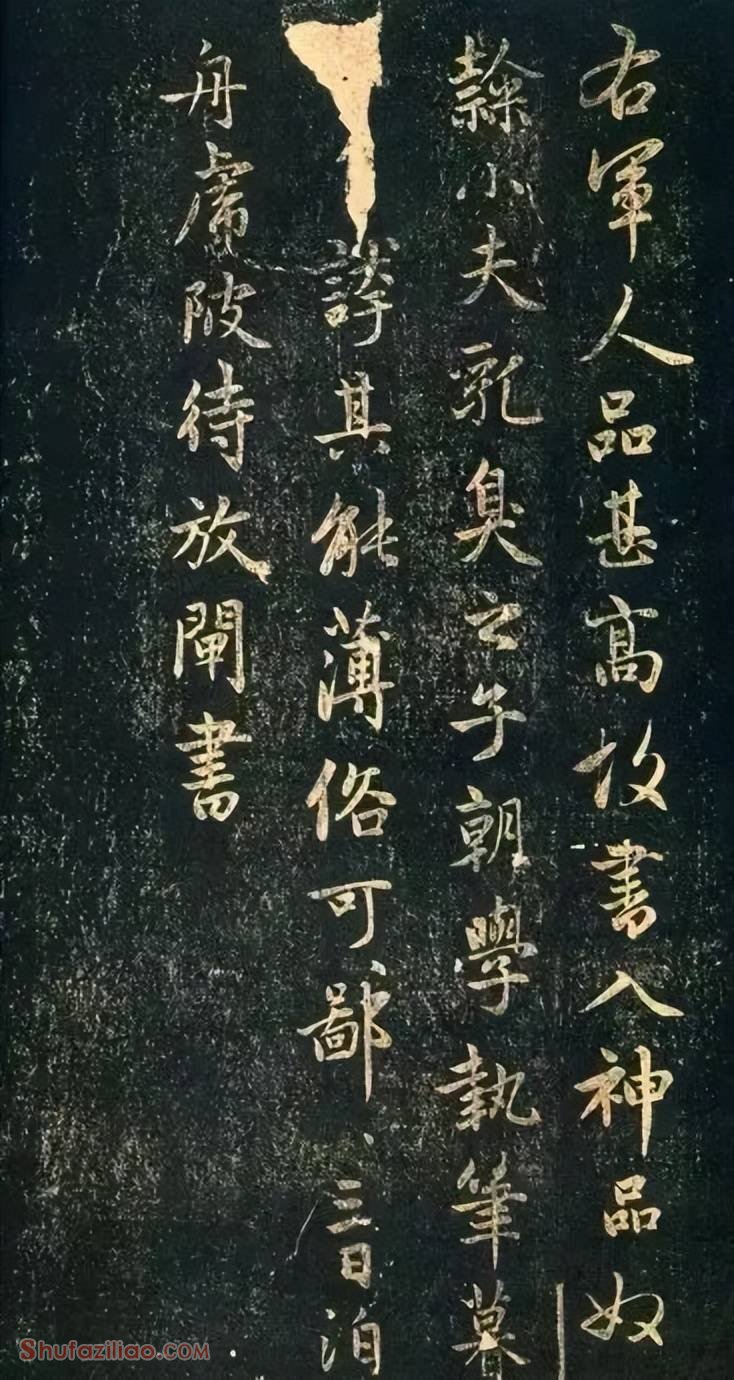 右軍人品甚高故書入神品奴
隸小夫乳臭之子朝學執筆暮
誇其能薄俗可〻鄙〻三日泊
舟虎陂待放閘書
Shufaziliao.com